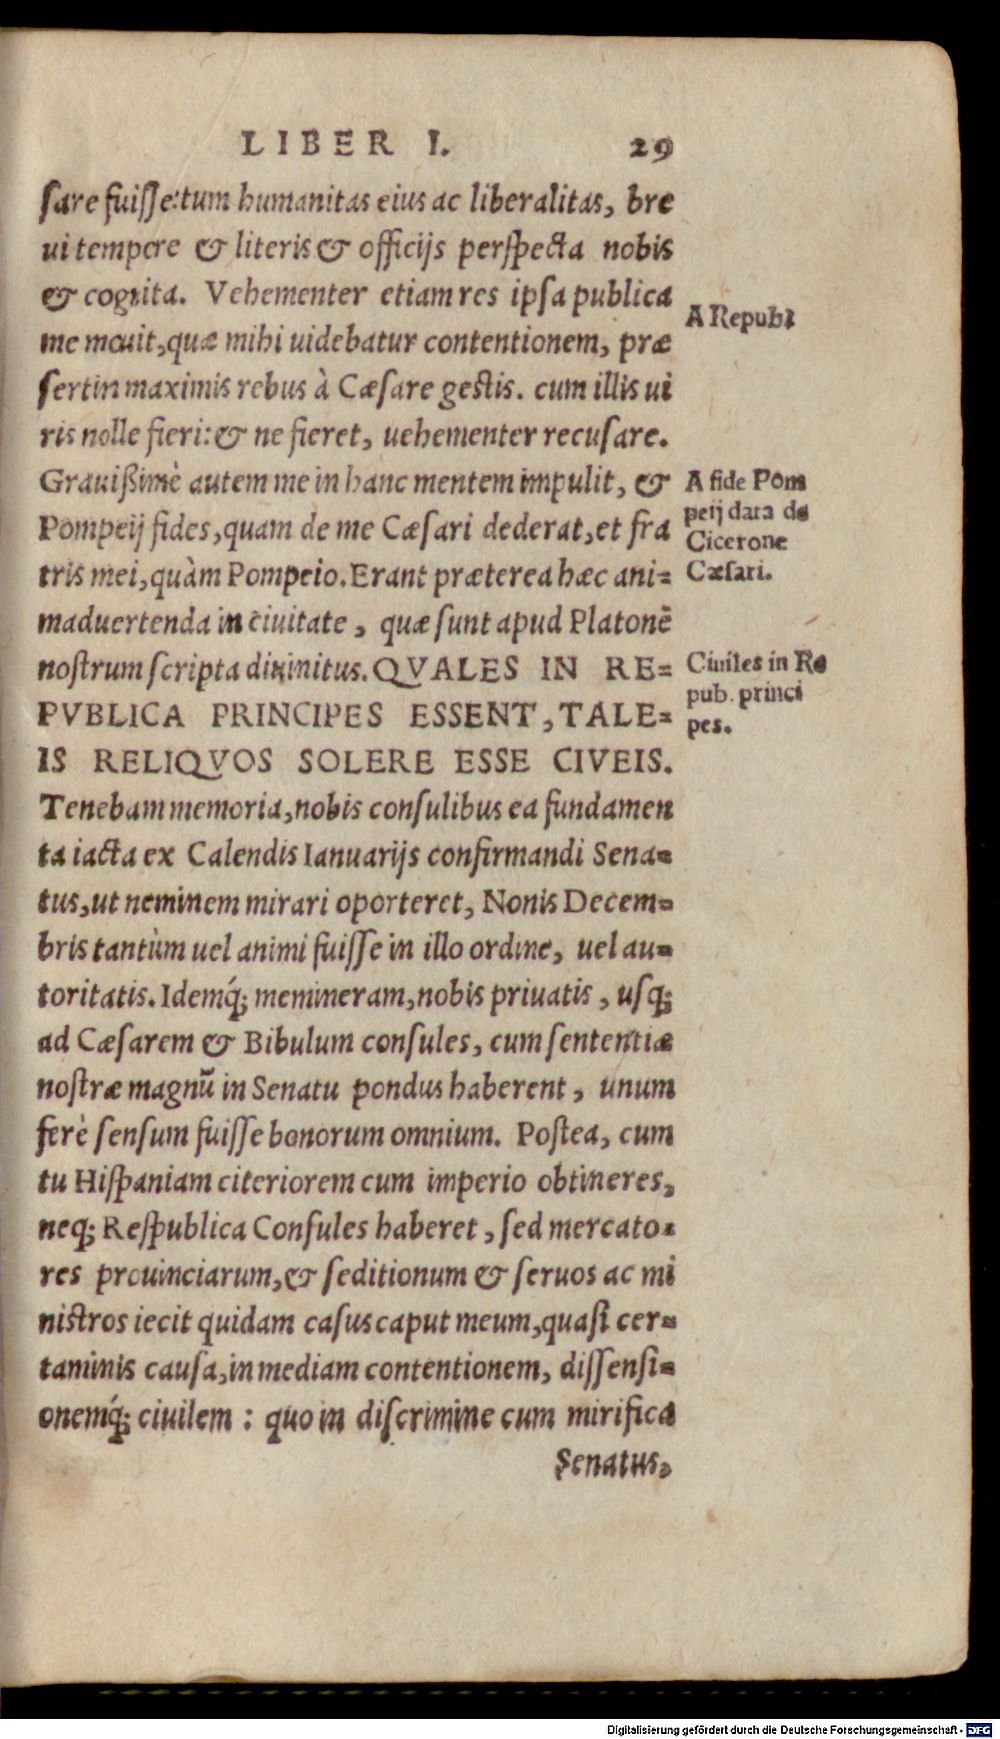 LIBER I. 29
sare fuiſſe:tum humanitas eius ac liberalitas, bre
ui tempore & literis & officijs perſpecta nobis
& cognita. Vehementer etiam res ipſa publica
me mouit,quæ mihi uidebatur contentionem, præ
ſertin maximis rebus à Cæſare geſtis. cum illis ui
ris nolle fieri:& ne fieret, uehementer recuſare.
Grauißimè autem me in hanc mentem impulit, &
Pompeij fides,quam de me Cæſari dederat,et fra
tris mei,quàm Pompeio.Erant præterea hæc ani=
maduertenda in ciuitate, quæ ſunt apud Platonē
noſtrum ſcripta diuinitus.QVALES IN RE=
PVBLICA PRINCIPES ESSENT,TALE=
IS RELIQVOS SOLERE ESSE CIVEIS.
Tenebam memoria,nobis conſulibus ea fundamen
ta iacta ex Calendis Ianuarijs confirmandi Sena=
tus,ut neminem mirari oporteret, Nonis Decem=
bris tantùm uel animi fuiſſe in illo ordine, uel au=
toritatis.Idemq́; memineram,nobis priuatis, uſq;
ad Cæſarem & Bibulum conſules, cum ſententiæ
noſtræ magnū in Senatu pondus haberent, unum
ferè ſenſum fuiſſe bonorum omnium. Poſtea, cum
tu Hiſpaniam citeriorem cum imperio obtineres,
neq; Reſpublica Conſules haberet, ſed mercato=
res prouinciarum,& ſeditionum & ſeruos ac mi
niſtros iecit quidam caſus caput meum,quaſi cer=
taminis cauſa,in mediam contentionem, diſſenſi=
onemq́; ciuilem: quo in diſcrimine cum mirifica
Senatus,
A Republ
A fide Pom
peij data de
Cicerone
Cæſari.
Ciuiles in Re
pub. princi
pes.
Digitalisierung gefördert durch die Deutsche Forschungsgemeinschaft - DFG